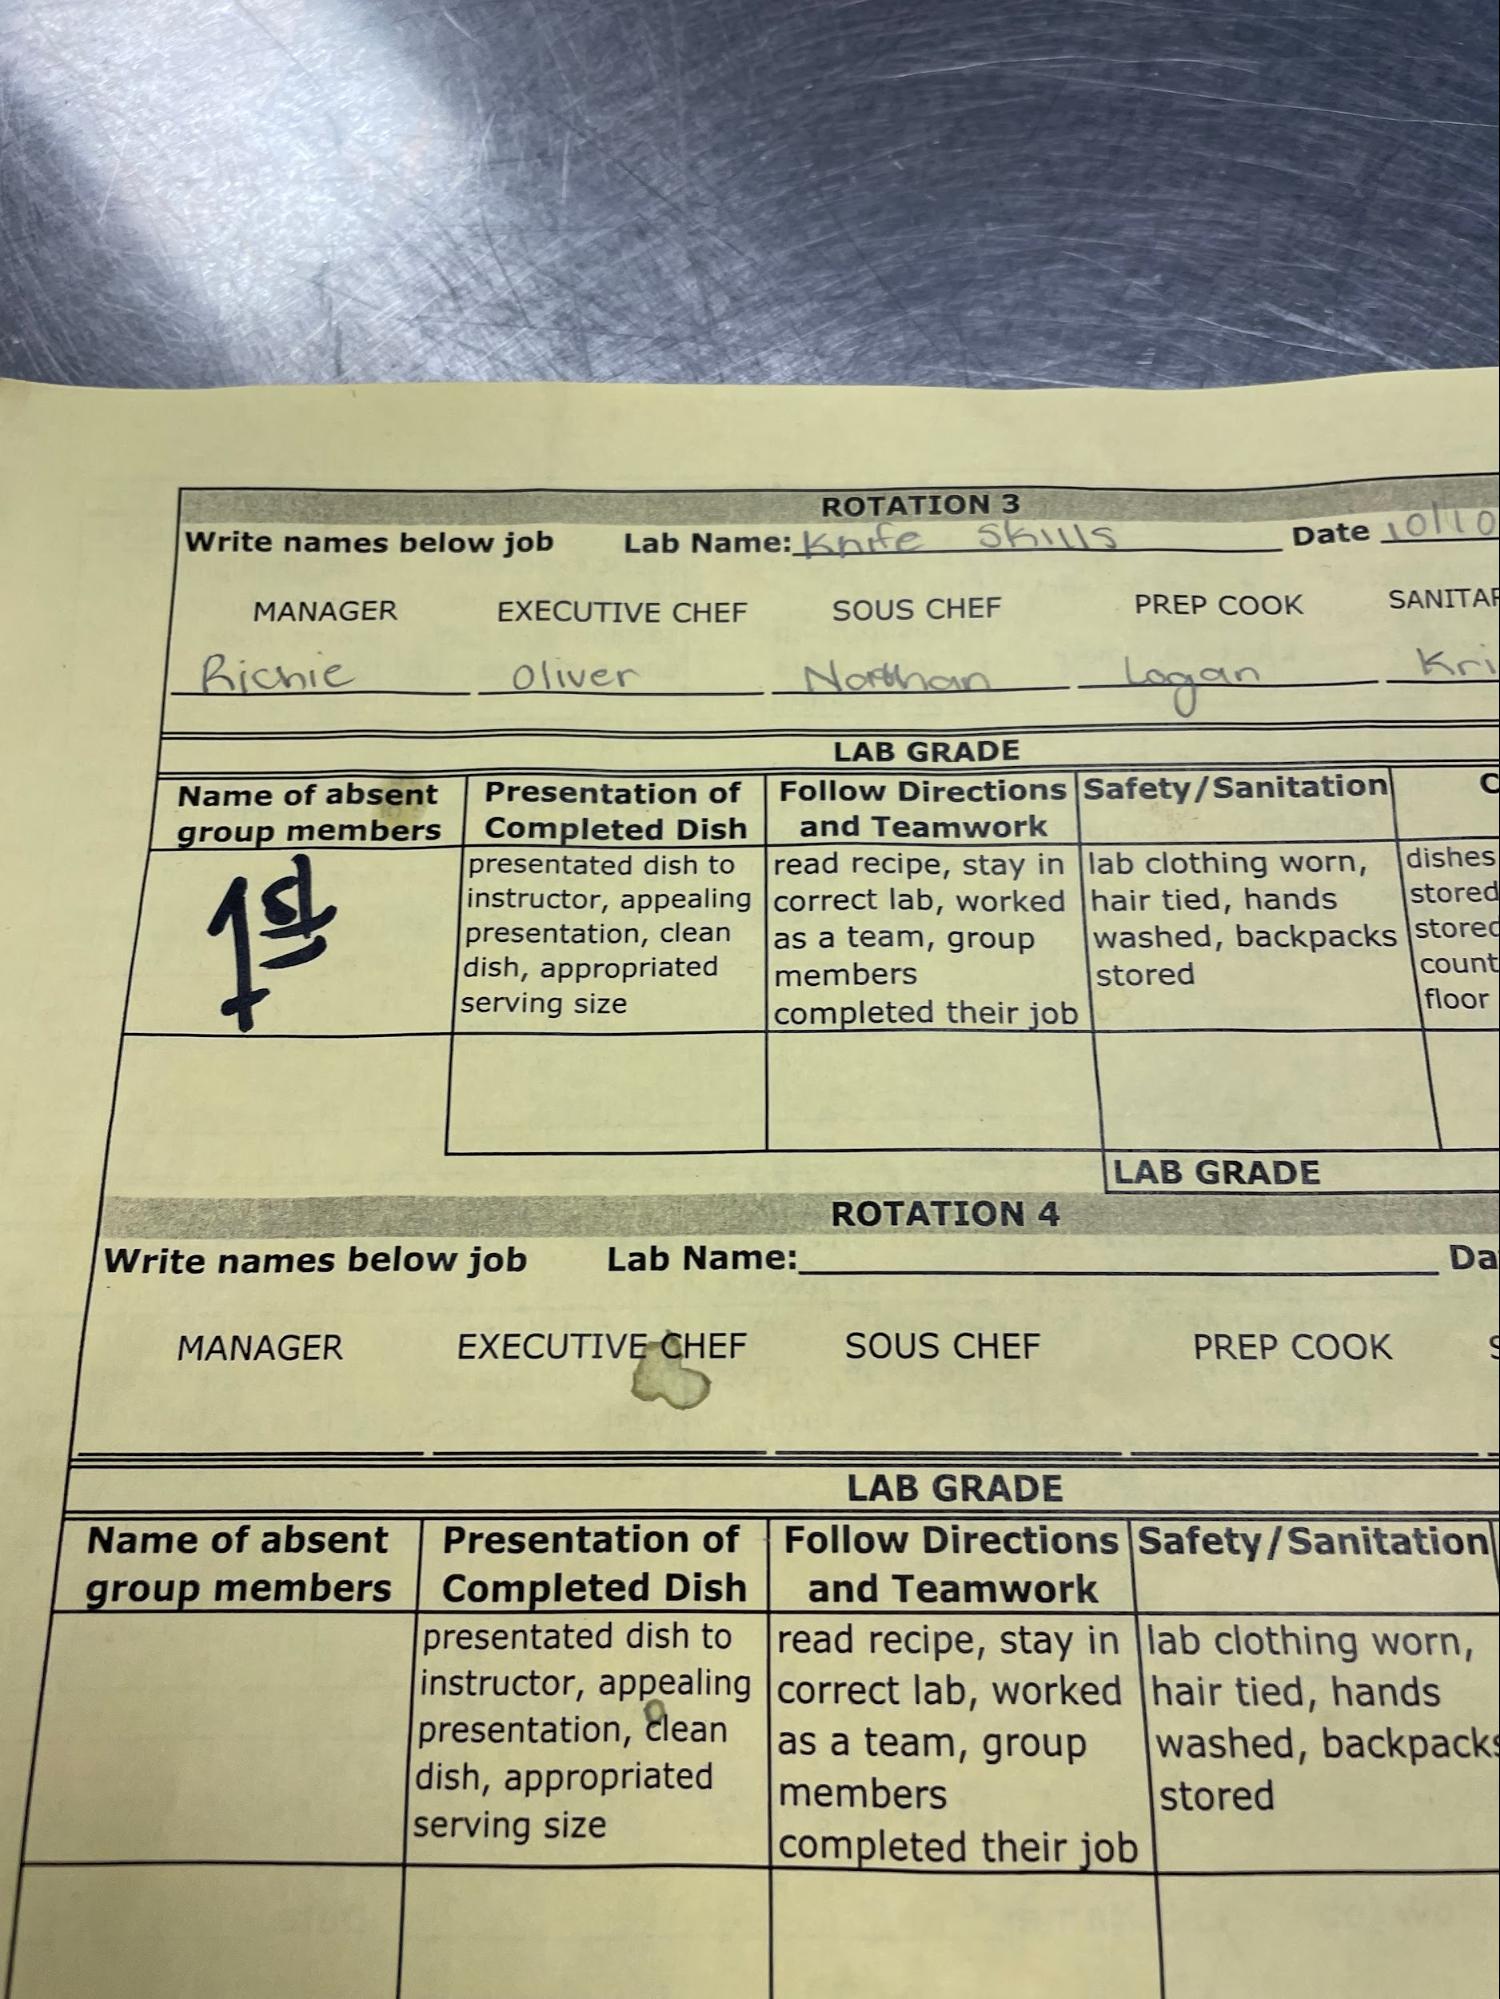 ROTATION 3
Write names below job Lab Name: Knife Skills Date 10/10
MANAGER EXECUTIVE CHEF SOUS CHEF PREP COOK SANITAR
Richie Oliver Northan Logan Kri
LAB GRADE
Name of absent group members Presentation of Completed Dish Follow Directions and Teamwork Safety/Sanitation C
1st
presentated dish to
instructor, appealing
presentation, clean
dish, appropriated
serving size
read recipe, stay in
correct lab, worked
as a team, group
members
completed their job
lab clothing worn,
hair tied, hands
washed, backpacks
stored
dishes
stored
stored
count
floor
LAB GRADE
ROTATION 4
Write names below job Lab Name: Da
MANAGER EXECUTIVE CHEF SOUS CHEF PREP COOK S
LAB GRADE
Name of absent group members Presentation of Completed Dish Follow Directions and Teamwork Safety/Sanitation
presentated dish to
instructor, appealing
presentation, clean
dish, appropriated
serving size
read recipe, stay in
correct lab, worked
as a team, group
members
completed their job
lab clothing worn,
hair tied, hands
washed, backpacks
stored